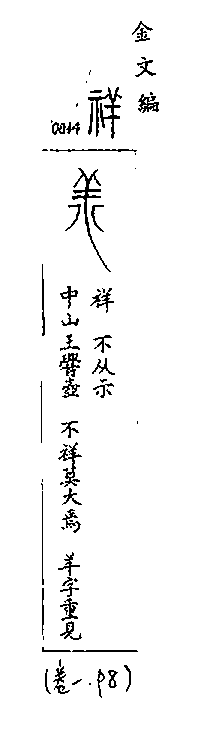 金文編
祥
祥 不从示
中山王壺 不祥莫大焉 羊字重見
(卷一.p8)